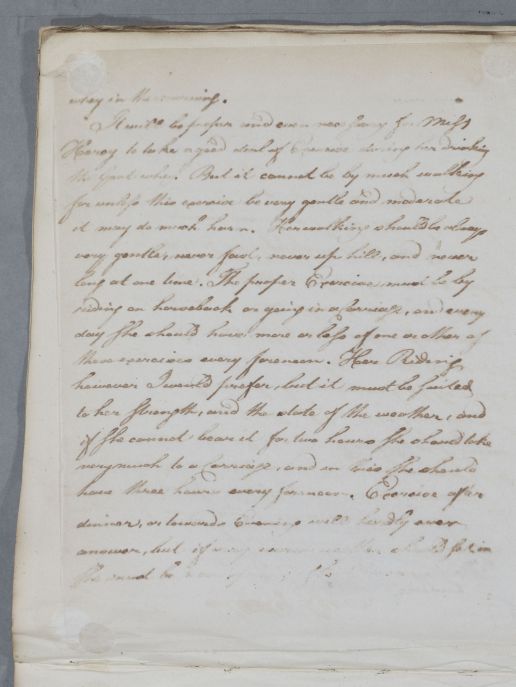 in the evening.
It will be proper and even necessary for Miss
Heroy to take a good deal of Exercise during her drinking
the Goat whey. But it cannot be by much walking
for unless this exercise be very gentle and moderate
it may do much harm. Her walking should be always
very gentle, never fast, never up hill, and never
long at one time. The proper Exercise must be by
riding on horseback or going in a Carriage, and every
day She should have more or less of one or other of
these exercises every forenoon. Her Riding
however I would prefer, but it must be suited
to her strength, and the state of the weather, and
if She cannot bear it for two hours She should take
very much to a Carriage, and in this She should
have three hours every forenoon. Exercise after
dinner, or towards Evening will hardly ever
answer, but if very should in
She must be